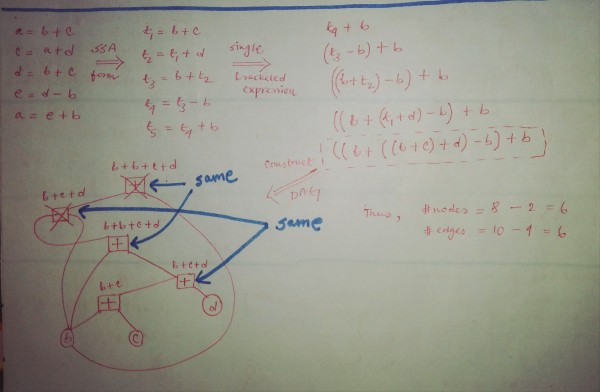 a = b + c
c = a + d
d = b + c
e = d - b
a = e + b
SSA
form
t1 = b + c
t2 = t1 + d
t3 = b + t2
t4 = t3 - b
t5 = t4 + b
single
bracketed
expression
t4 + b
(t3 - b) + b
((b + t2) - b) + b
((b + (t1 + d) - b) + b
((b + ((b + c) + d) - b) + b
construct
DAG
b + b + c + d
+
same
b + c + d
b + b + c + d
+
same
b + c + d
+
b + c
+
d
b
c
Thus, #nodes = 8 - 2 = 6
#edges = 10 - 4 = 6